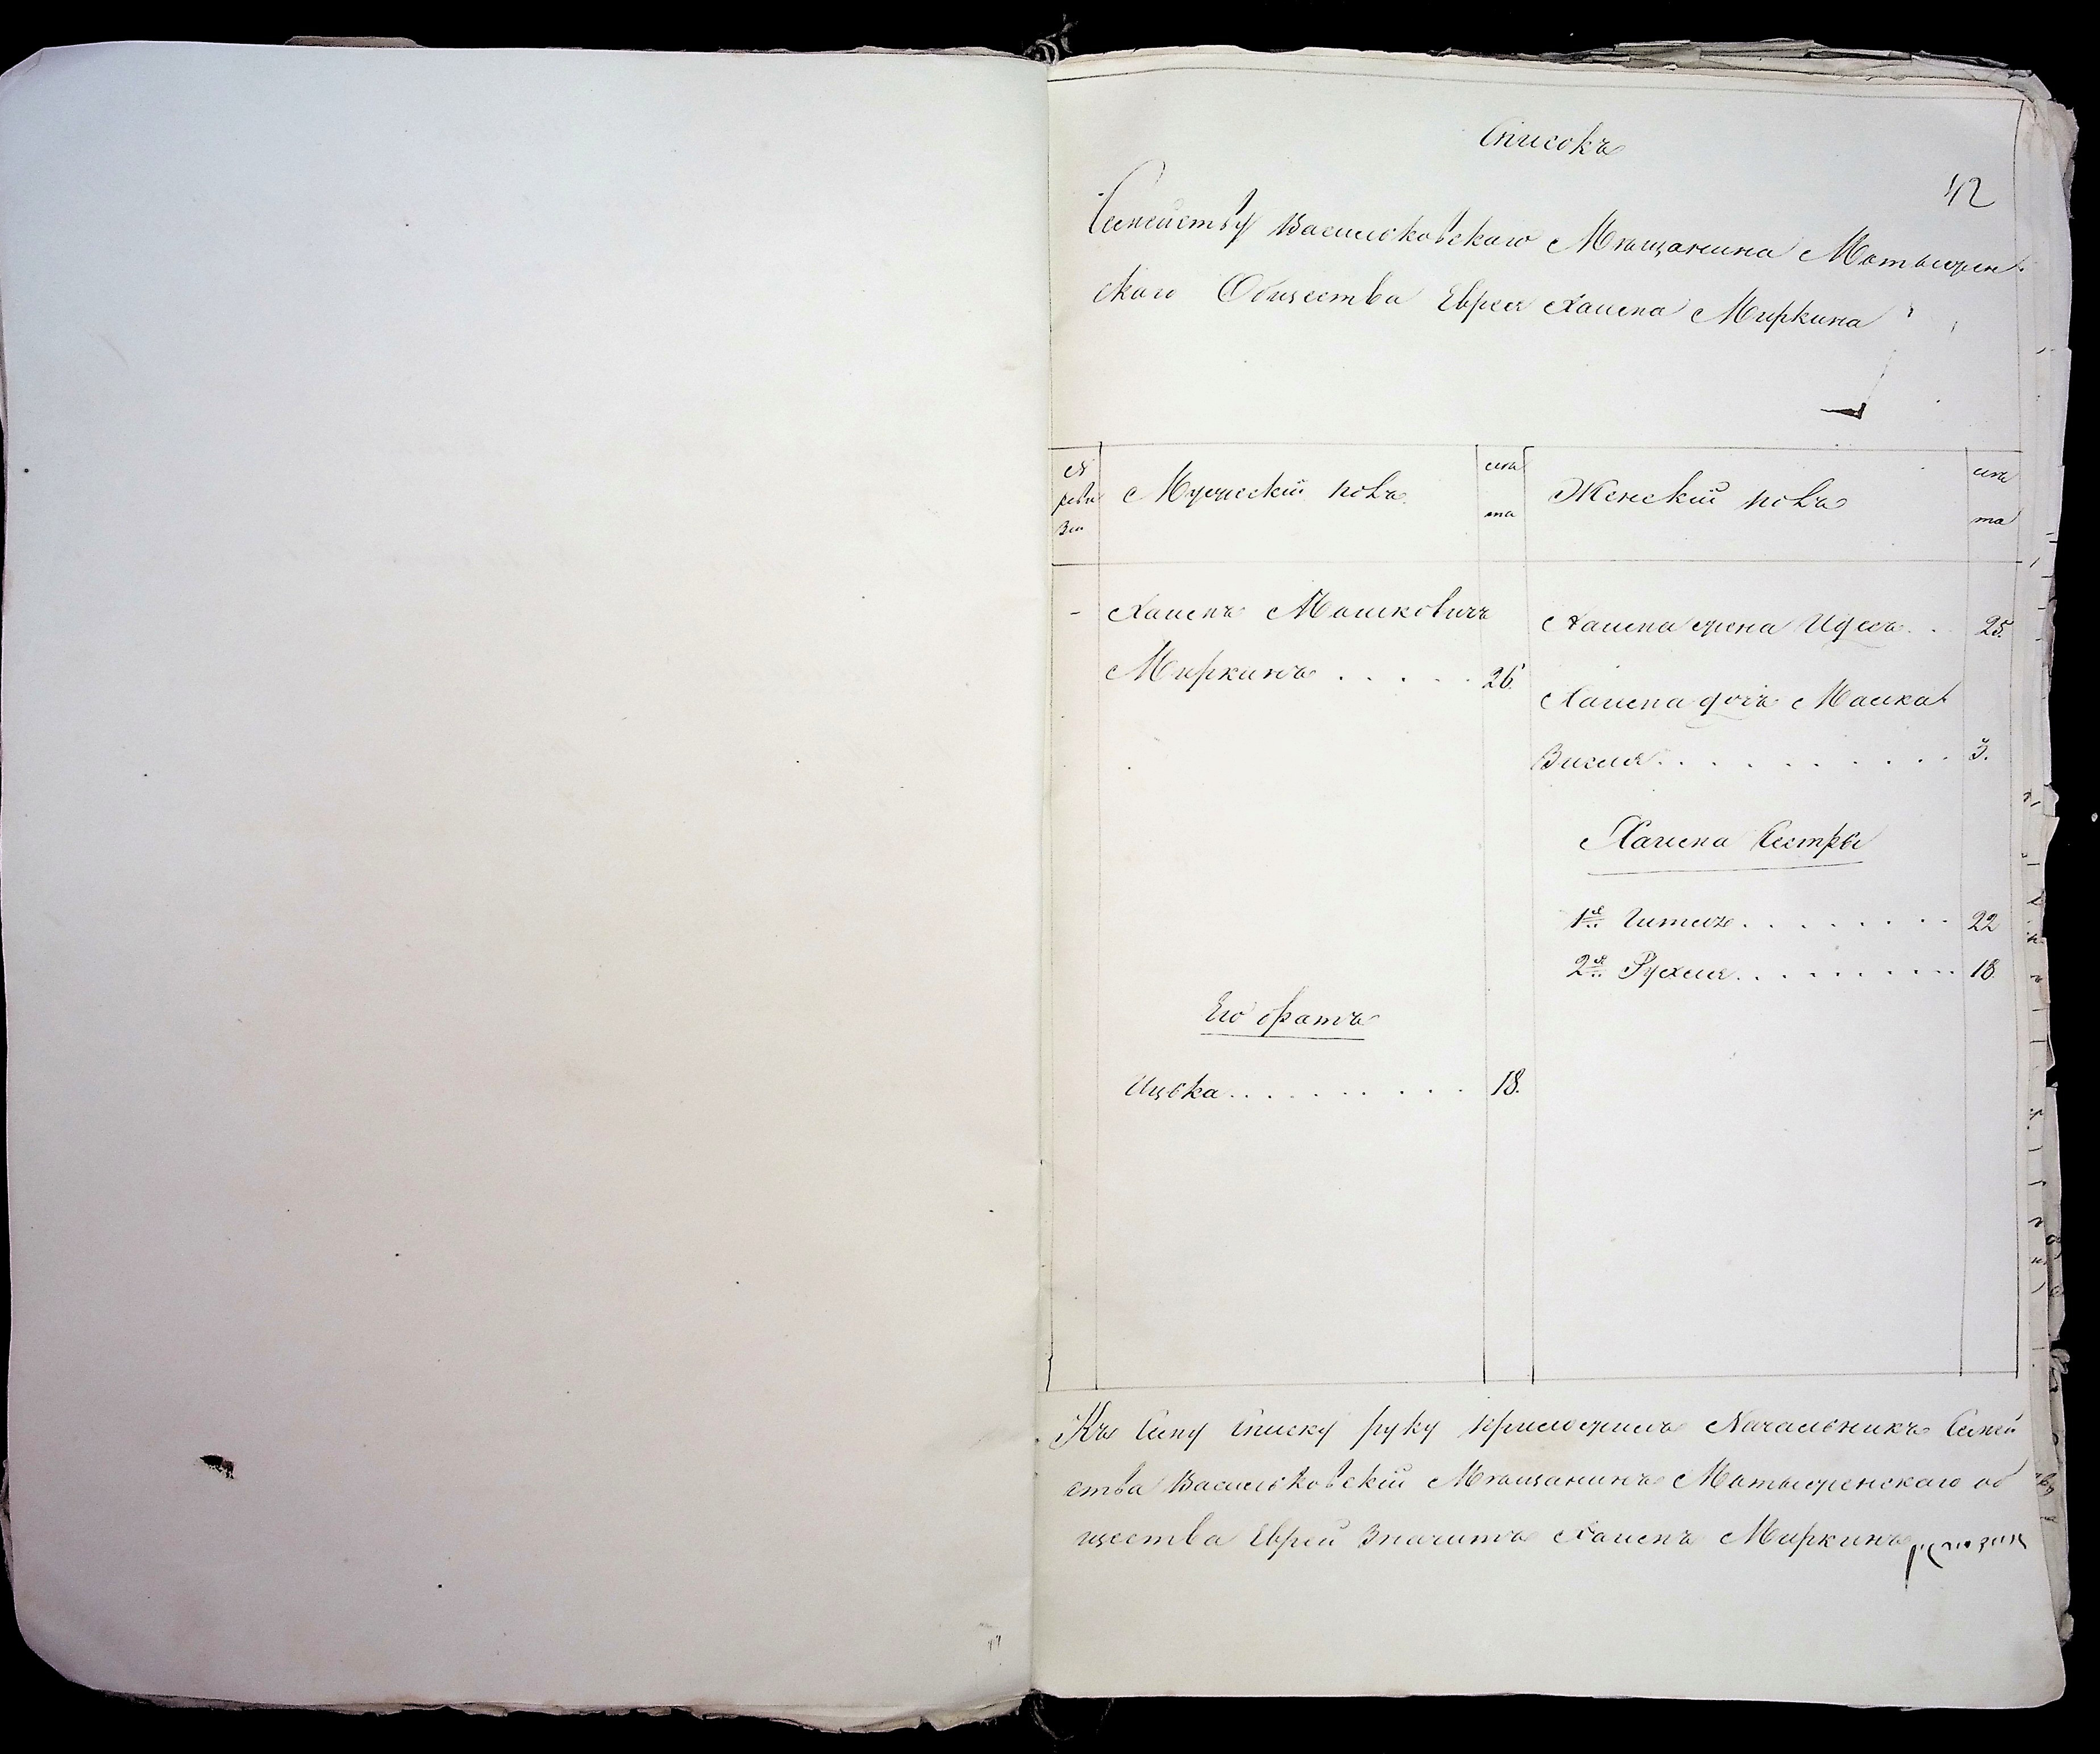 Списокъ
42
Семейству Васильковскаго Мѣщанина Мотыжен-
скаго Общества Еврея Хаима Миркина
№ реви зіи
Мужескій полъ
лѣ та
Женскій полъ
лѣ та
- Хаимъ Мошковичъ
Миркинъ . . . . . 26.
Хаима жена Идесъ . . 25.
Хаима дочь
. . . . . . . . . 3.
Хаима Сестры
1я . . . . . . . 22
2я Рухля . . . . . . . . 18.
Его братъ
Ицька . . . . . . . . . 18.
Къ Сему Списку руку приложилъ Начальникъ Семей
ства Васильковскій Мѣщанинъ Мотыженскаго об
щества Еврей Значитъ Хаимъ Миркинъ